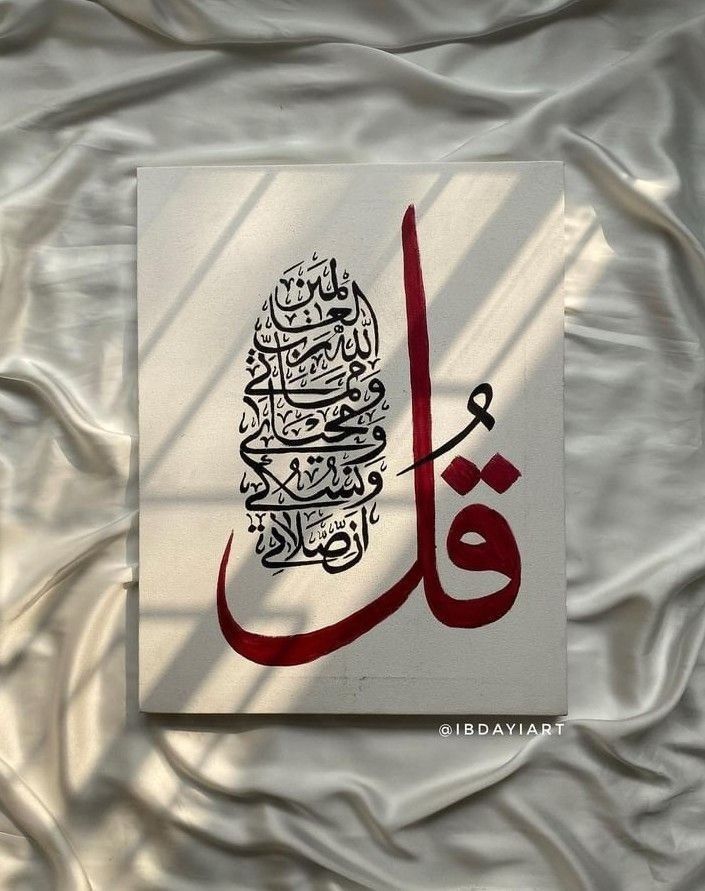 قُل
إن صلاتي
ونسكي
ومحياي
ومماتي
لله رب
العالمين
@IBDAYIART